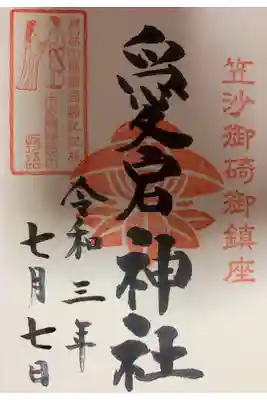 笠沙御碕御鎮座
愛宕神社
令和三年
七月七日